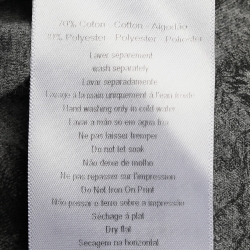 70% Coton - Cotton - Algodão
Polyester - Polyester - Poliester
Laver séparément
wash separately
Lavar separadamente
Lavage à la main uniquement à l'eau froide
Hand washing only in cold water
Lavar a mão so em agua fria
Ne pas laisser tremper
Do not let soak
Não deixe de molho
Ne pas repasser sur l'impression
Do Not Iron On Print
Não passar o ferro sobre a impressão
Séchage à plat
Dry flat
Secagem na horizontal